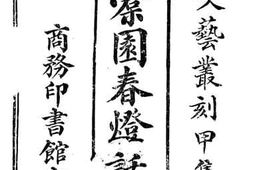 文藝叢刻甲集
橐園春燈話
商務印書館